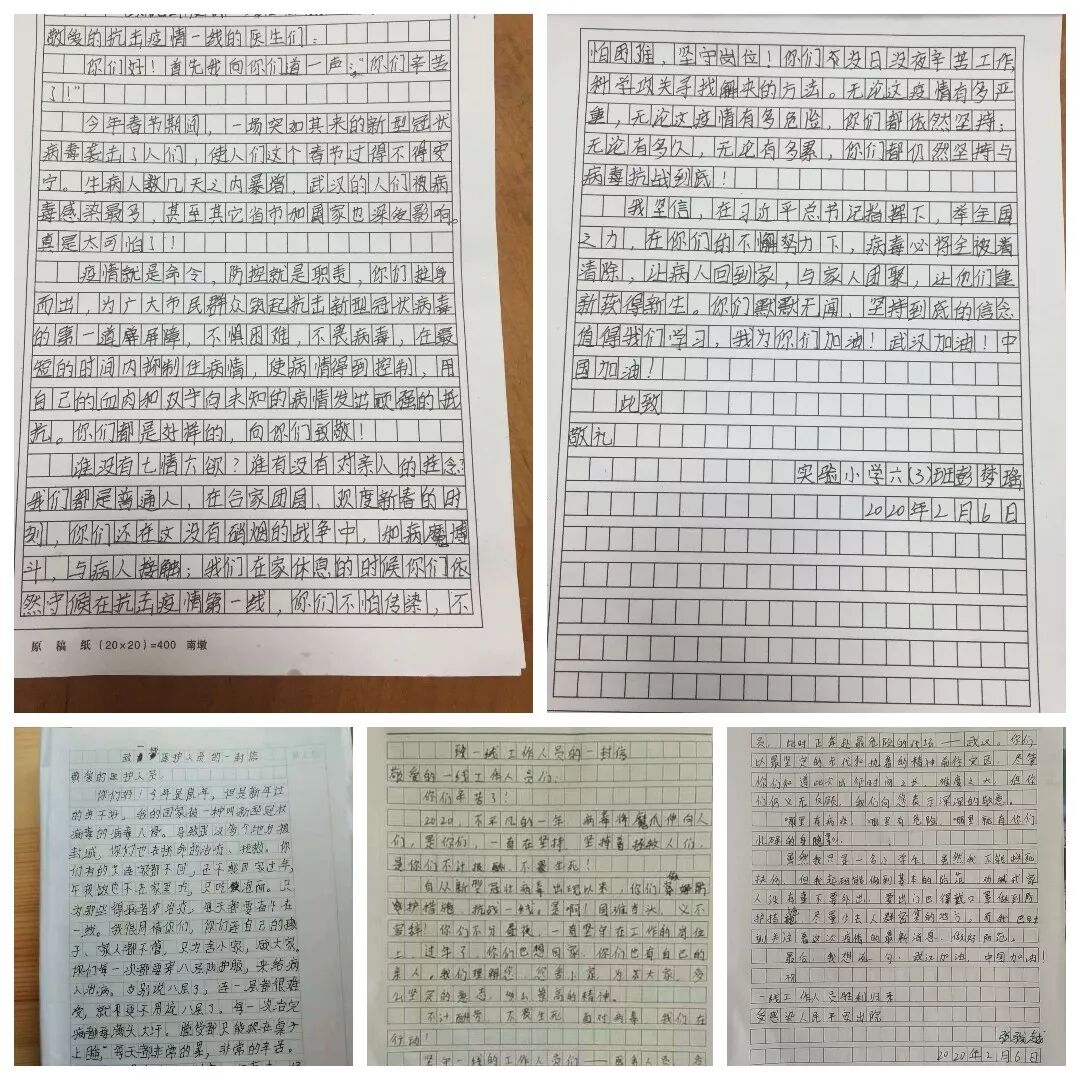 敬爱的抗击疫情一线的医生们：
你们好！首先我向你们道一声：“你们辛苦
了！”
今年春节期间，一场突如其来的新型冠状
病毒袭击了人们，使人们这个春节过得不得安
宁。生病人数几天之内暴增，武汉的人们被病
毒感染最多，甚至其它省市加国家也深受影响。
真是太可怕了！
疫情就是命令，防控就是职责，你们挺身
而出，为广大市民群众筑起抗击新型冠状病毒
的第一道屏障，不惧困难，不畏病毒，在最
短的时间内抑制住病情，使病情得到控制，用
自己的血肉和双手向未知的病情发出顽强的抵
抗。你们都是好样的，向你们致敬！
谁没有七情六欲？谁有没有对亲人的挂念？
我们都是普通人，在合家团圆、欢度新春的时
刻，你们还在这没有硝烟的战争中，和病魔搏
斗，与病人接触；我们在家休息的时候你们依
然守候在抗击疫情第一线，你们不怕传染，不
原 稿 纸 (20×20)=400 南墩
怕困难，坚守岗位！你们不没日没夜辛苦工作，
科学攻关寻找解决的方法。无论这疫情有多严
重，无论这疫情有多危险，你们都依然坚持；
无论有多久，无论有多累，你们都仍然坚持与
病毒抗战到底！
我坚信，在习近平总书记指挥下，举全国
之力，在你们的不懈努力下，病毒必将全被着
清除，让病人回到家，与家人团聚，让他们重
新获得新生。你们默默无闻，坚持到底的信念
值得我们学习，我为你们加油！武汉加油！中
国加油！
此致
敬礼
实验小学六(3)班彭梦瑶
2020年2月6日
致一线医护人员的一封信
尊爱的医护人员：
你们好！今年是鼠年，但是新年过
的并不好，我的国家被一种叫新型冠状
病毒的病毒入侵。导致武汉每个地方被
封城，你们也在拼命的治疗、抢救。你
们有的久连家都不回，还不能回家过年，
年夜饭也不在家里吃，只吃泡面。只
为那些得病者护治疗，每天都要奋斗在
一线。我很同情你们，你们连自己的孩
子、家人都不管，只为舍小家，顾大家。
你们每一次都要穿八层防护服，来给病
人治病。也别说八层了，连一层都很难
受，就更别说八层了。每一次治完
病都每满头大汗。
上睡，每天都非常的累，非常的辛苦。
致一线工作人员的一封信
敬爱的一线工作人员们：
你们辛苦了！
2020，不平凡的一年，病毒将魔爪伸向人
们，是你们，一直在坚持，坚持着拯救人们，
是你们不计报酬，不畏生死！
自从新型冠状病毒出现以来，你们
护措施，抗战一线。是啊！国难当头，义不
容辞！你们不分昼夜，一直坚守在工作的岗位
上，过年了，你们也想回家，你们也有自己的
亲人。我们理解您，您舍小家，为大家，多
么坚定的意志，多么崇高的精神。
不计酬劳，不畏生死，面对病毒，我们在
行动！
坚守一线的工作人员们——医务人员
员，此时正奔赴最危险的战场——武汉。你们
以最坚定的步伐和执着的精神前往灾区，尽管
你们知道此次出征时间之长，难度之大，但你
们仍义无反顾，我们向您表示深深的敬意。
哪里有病疫，哪里有危险，哪里就有你们
忙碌的身影。
虽然我只是一名小学生，虽然我不能救死
扶伤，但我起码能做到基本的防范，
人没有事不要外出，要出门也得戴口罩做到防
护措施，尽量少去人群密集的地方，而我也时
刻关注着这次疫情的最新消息，做好防范。
最后，我想说一句，武汉加油，中国加油！
祝
一线工作人员胜利归来
受感染人民平安出院
2020年2月6日